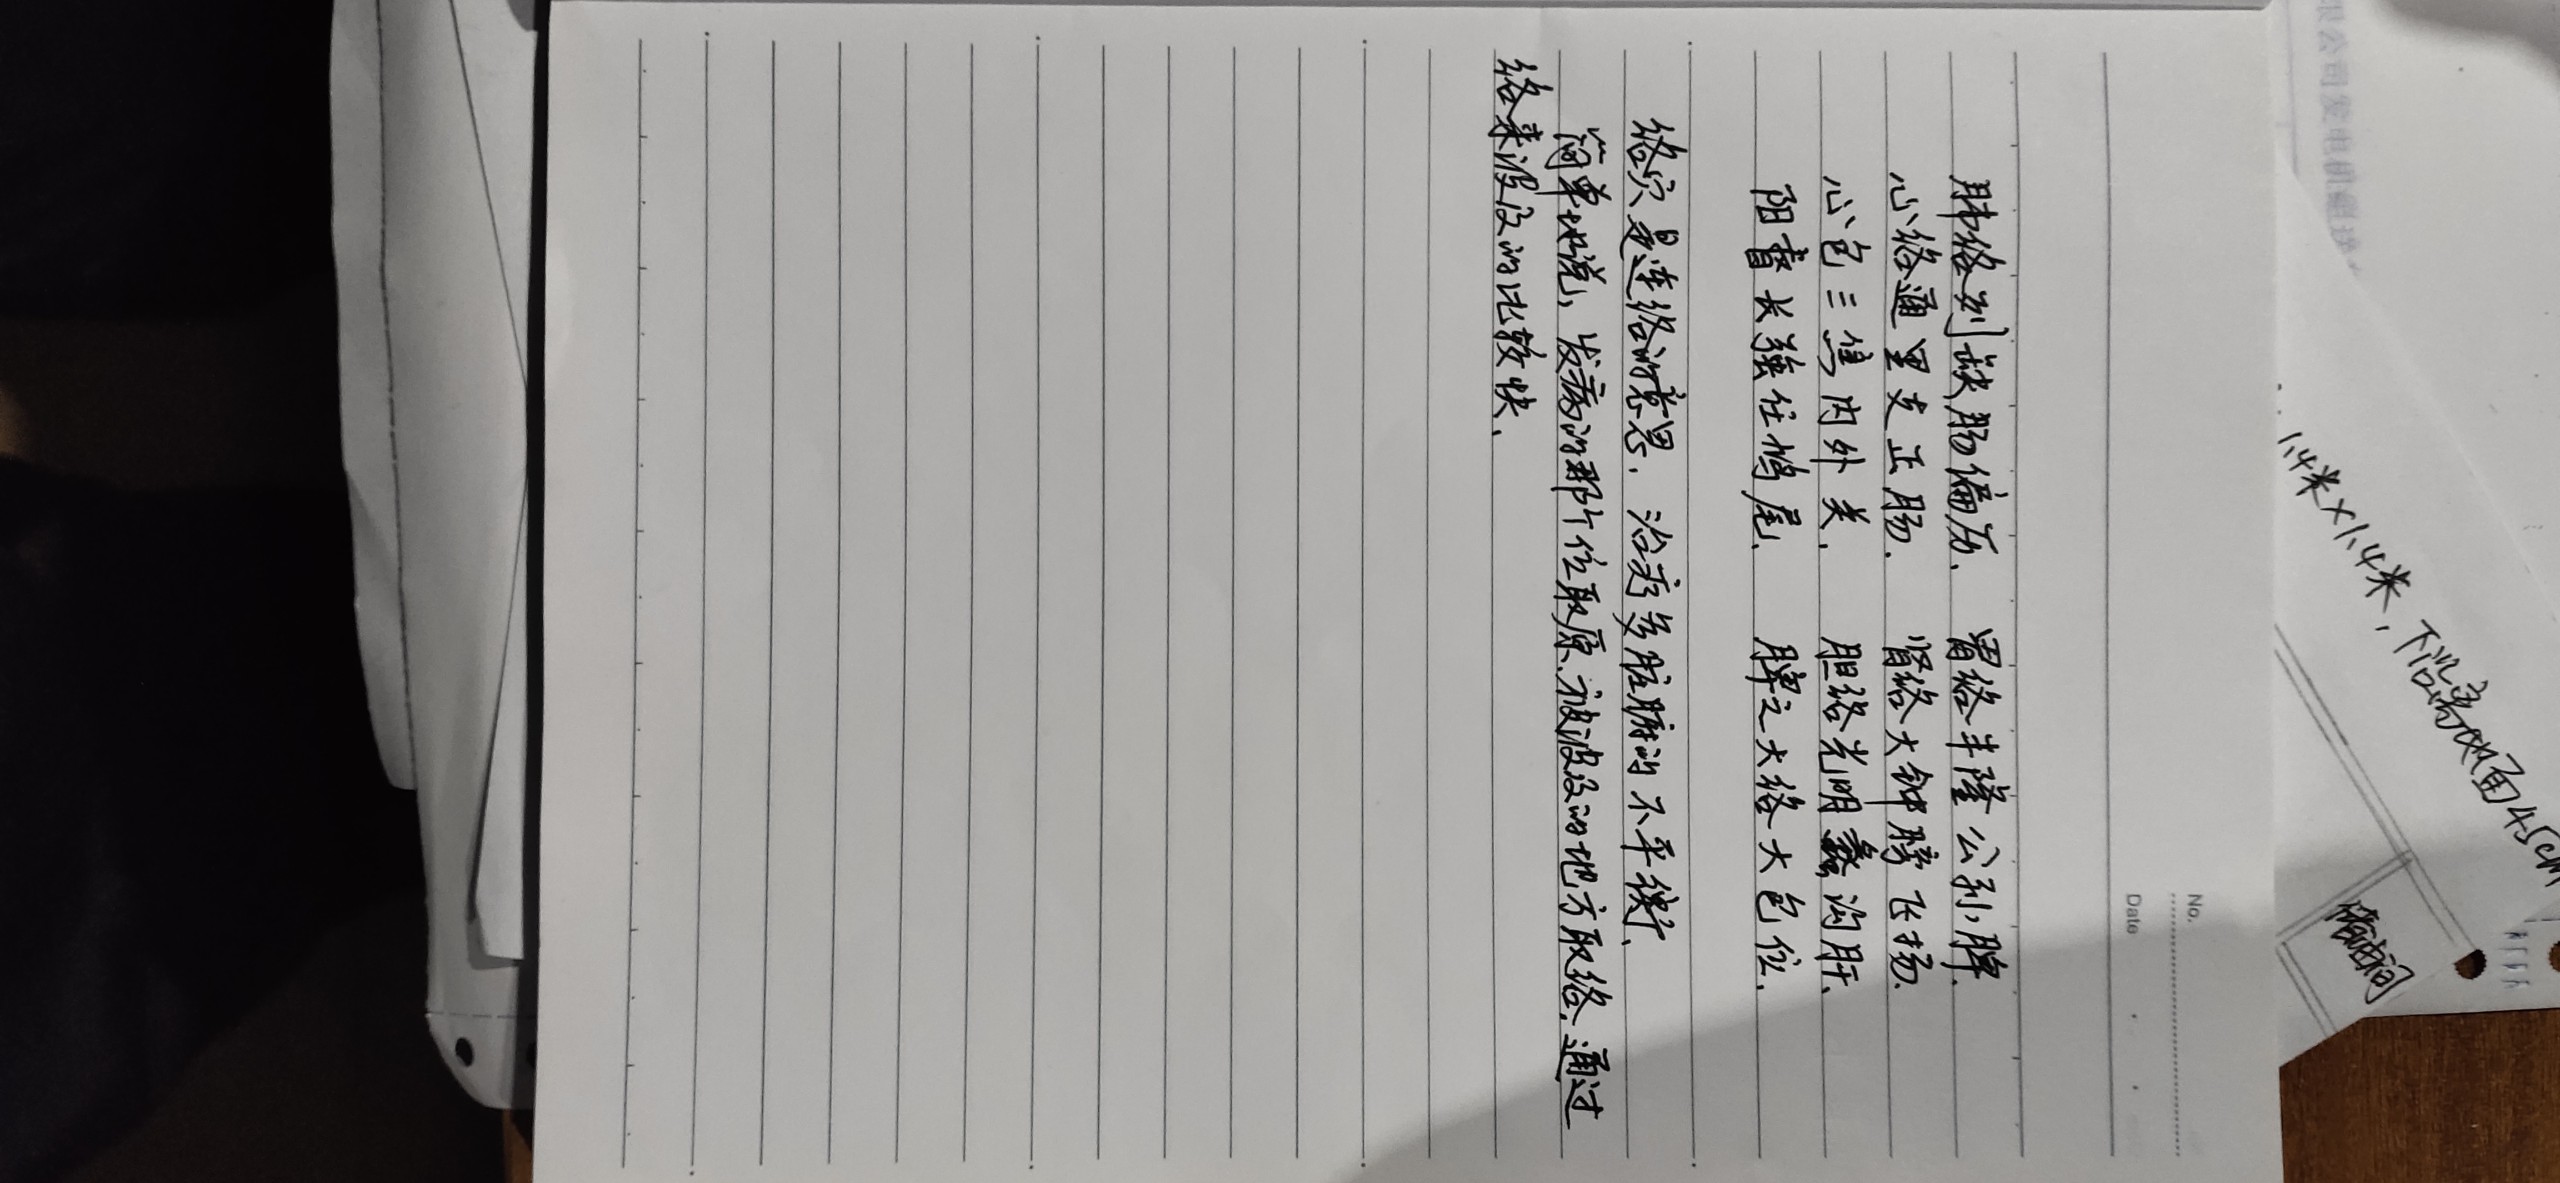 No.
Date
肺络列缺肠偏历. 胃络丰隆公孙脾.
心络通里支正肠. 肾络大钟膀飞扬.
心包三焦内外关. 胆络光明蠡沟肝.
阳督长强任鸠尾. 脾之大络大包位.
络穴是连络的意思. 治疗多脏腑的不平衡.
简单地说, 发病的那个位取原. 被波及的地方取络. 通过
络来波及的比较快.
1.4米×1.4米, 下沿离地面45cm
限公司发电机组